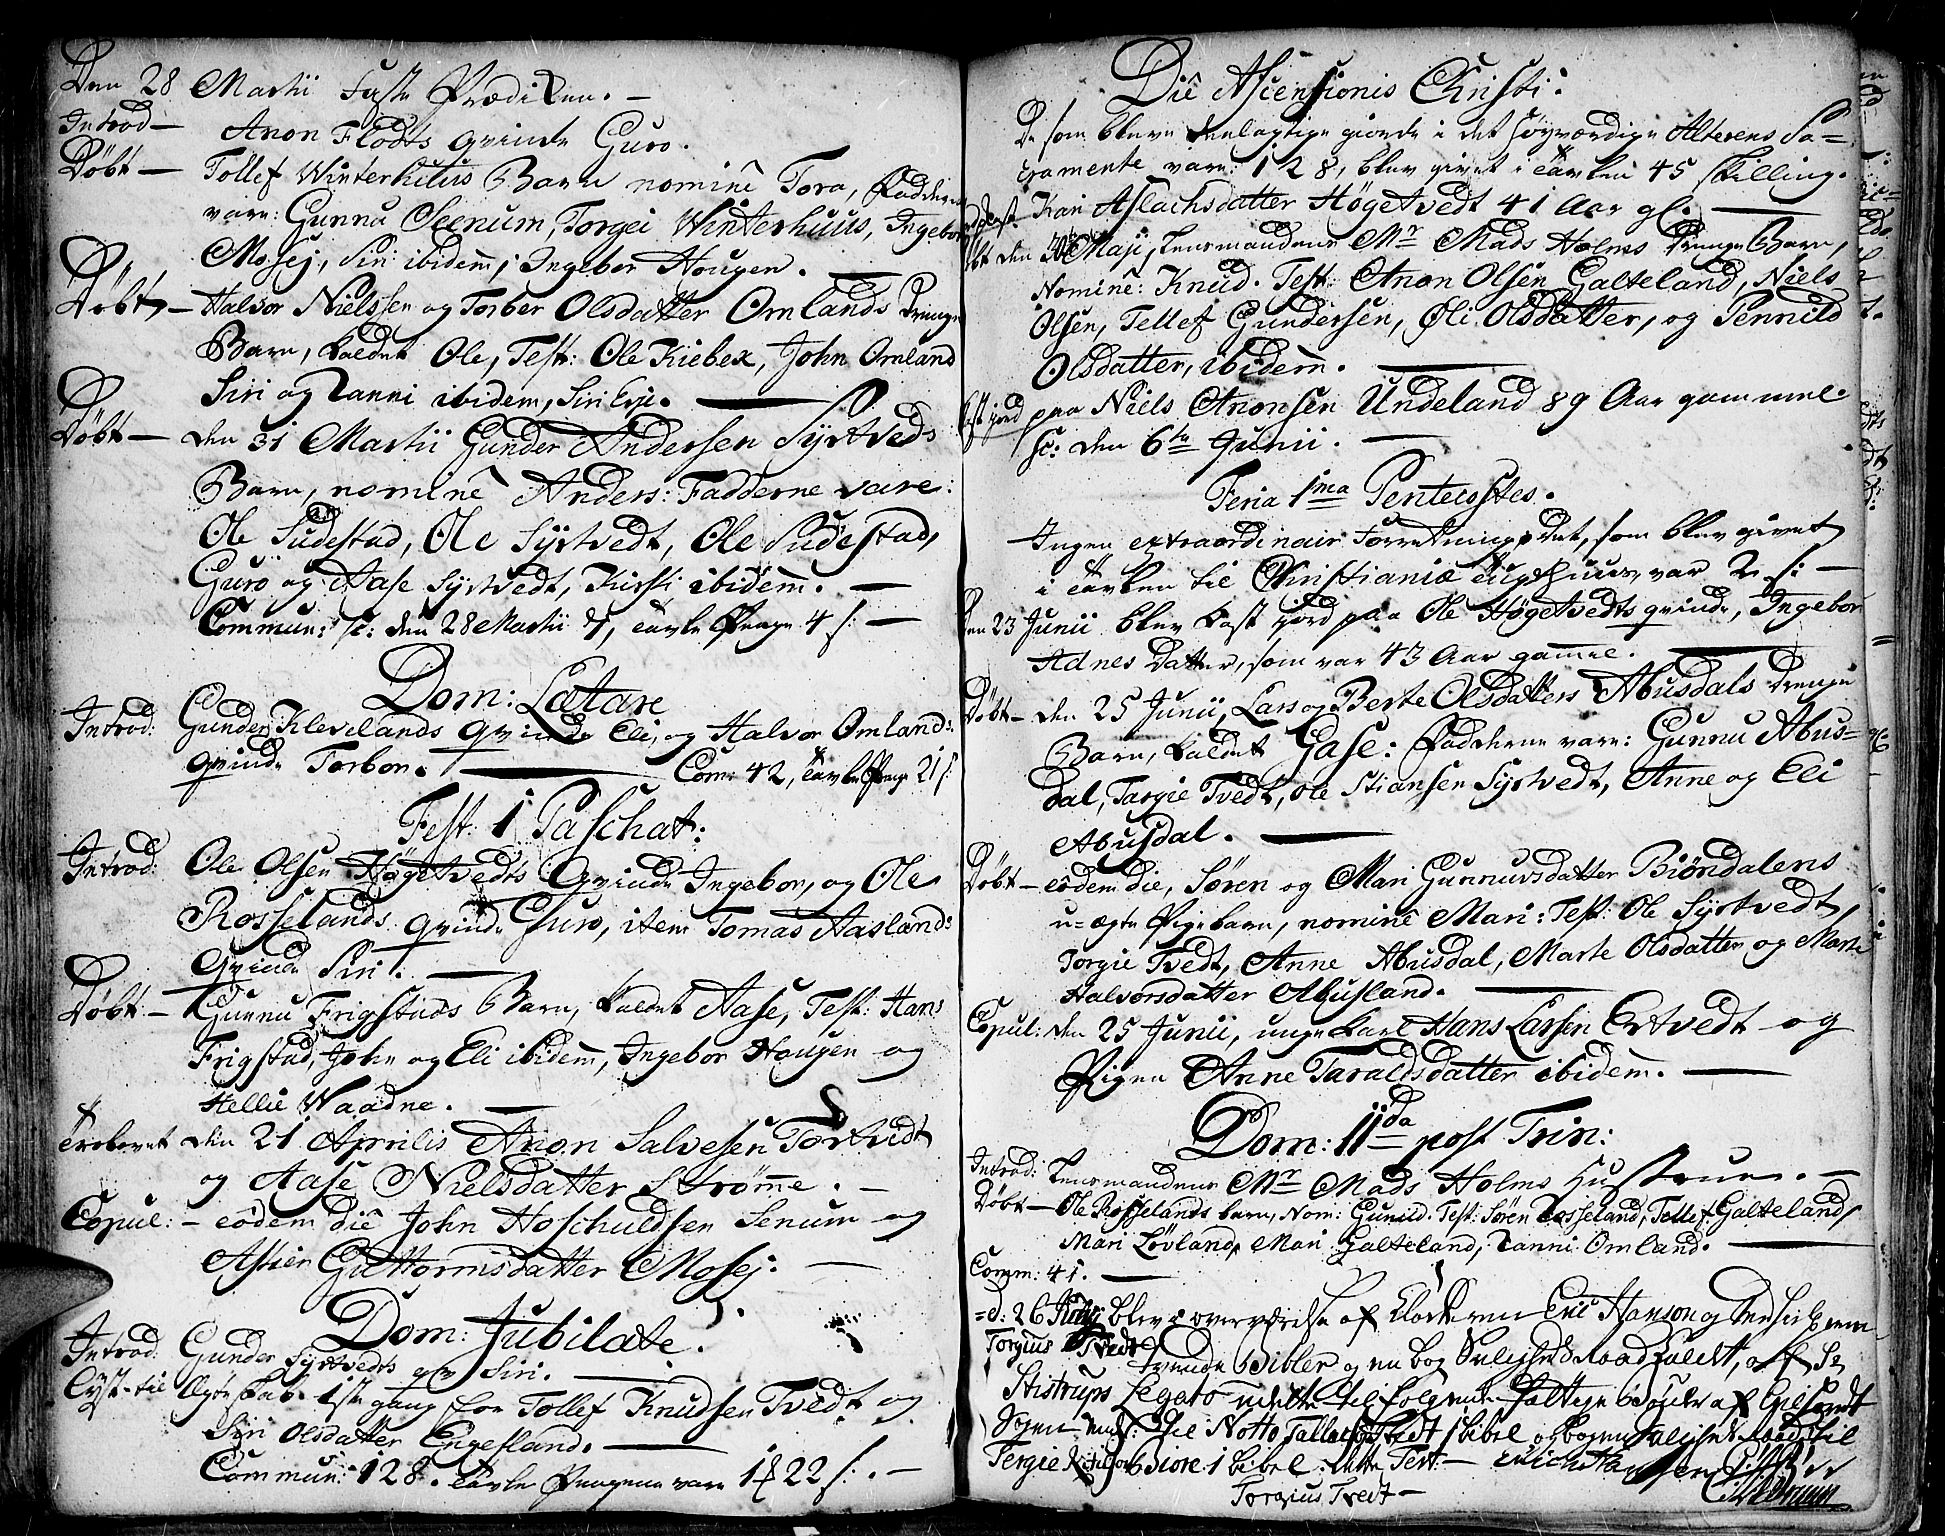 Den 28 Martii Faste Prædiken. —
Introd — Anon Flodts qvinde Guro.
Døbt — Tollef Winterhuus Barn nomine Tora, Fadderne
vare: Gunnu Seenum, Torgei Winterhuus, Ingebor
Mosej, Siri ibidem, Ingebor Hougen. —
Døbt — Halvor Nielssen og Torber Olsdatter Omlands Drenge
Barn, kaldet Ole, Test: Ole Kiebex, John Omland
Siri og Tanni ibidem, Siri Erje. —
Døbt — den 31 Martii Gunder Andersen Syrtveds
Barn, nomine Anders: Fadderne vare:
Ole Sudestad, Ole Syrtvedt, Ole Sudestad,
Guro og Aase Syrtvedt, Kirsti ibidem. —
Commun: sc: den 28 Martii 7, Tavle Penge 4 s: —
Dom: Lætare
Introd: Gunder Klevelands qvinde Eli, og Halvor Omlands
qvinde Torbor. — Com: 42, Tavle Penge 21 s:
Fest: 1 Paschat:
Introd: Ole Olsen Høgetvedts Qvinde Ingebor, og Ole
Rosselands qvinde Guro, item Tomas Aaslands
Qvinde Siri. —
Døbt — Gunnu Frigstads Barn, kaldet Aase, Test: Hans
Frigstad, John og Eli ibidem, Ingebor Hougen og
Hellie Waadne. —
Trolovet den 21 Aprilis Anon Salvesen Tortvedt
og Aase Nielsdatter Strømme. —
Copul: — eodem die John Hoschuldsen Senum og
Astier Guttormsdatter Mosej. —
Dom: Jubilate.
Introd: Gunder Syrtvedts qv: Siri. —
Lyst til Ægteskab 1ste gang for Tollef Knudsen Tvedt og
Siri Olsdatter Engesland. —
Commun: 128. Tavle Pengene vare 1 22 s: —
Die Ascensionis Christi:
De som bleve deelagtige giorde i det høyværdige Alterens Sa=
cramente vare: 128, blev givet i tavlen 45 skilling.
Kari Aslachsdatter Høgetvedt 41 Aar gl. —
den Maji, Lensmandens Mr Mads Holms Drenge Barn,
Nomine: Knud. Test: Anon Olsen Galteland, Niels
Olsen, Tellef Gundersen, Øli Olsdatter, og Pennild
Olsdatter, ibidem. —
Kast jord paa Niels Anonsen Undeland 89 Aar gammel.
sc: den 6te Junii. —
Feria 1ma Pentecostes.
Ingen extraordinair Forretning. Det, som blev givet
i tavlen til Christianiæ Tugthuus, var 2 s: —
Den 23 Junii blev kast jord paa Ole Høgetvedts qvinde, Ingebor
Adnes datter, som var 43 Aar gamel. —
Døbt — den 25 Junii, Lars og Berte Olsdatters Abusdals Drenge
Barn, kaldet Gase: Fadderne vare: Gunnu Abus=
dal, Targie Tvedt, Ole Stiansen Syrtvedt, Anne og Eli
Abusdal. —
Døbt — eodem die, Søren og Mari Gunnursdatter Biøndalens
u=ægte Pigebarn, nomine Mari: Test: Ole Syrtvedt,
Torgie Tvedt, Anne Abusdal, Marte Olsdatter og Marte
Halvorsdatter Abusland. —
Copul: den 25 Junii, unge karl Hans Larsen Ertvedt og
Pigen Anne Taraldsdatter ibidem. —
Dom: 11da post Trin:
Introd: Lensmandens Mr Mads Holms Hustrue. —
Døbt — Ole Rosselands barn, Nom: Gunild. Test: Søren Rosseland, Tellef Galteland,
Mari Løvland, Mari Galteland, Tanni Omland. —
Comm: 41. —
d: 26 blev i overværelse af Klockeren Eric Hanson og
Torgius Tvedt tvende Bibler og en bog
Stistrups Legato til følgende fattige
Sogn, Notto Tvedt 1 bibel og bogen
Tergie 1 bibel. dette Test: —
Torgius Tvedt —